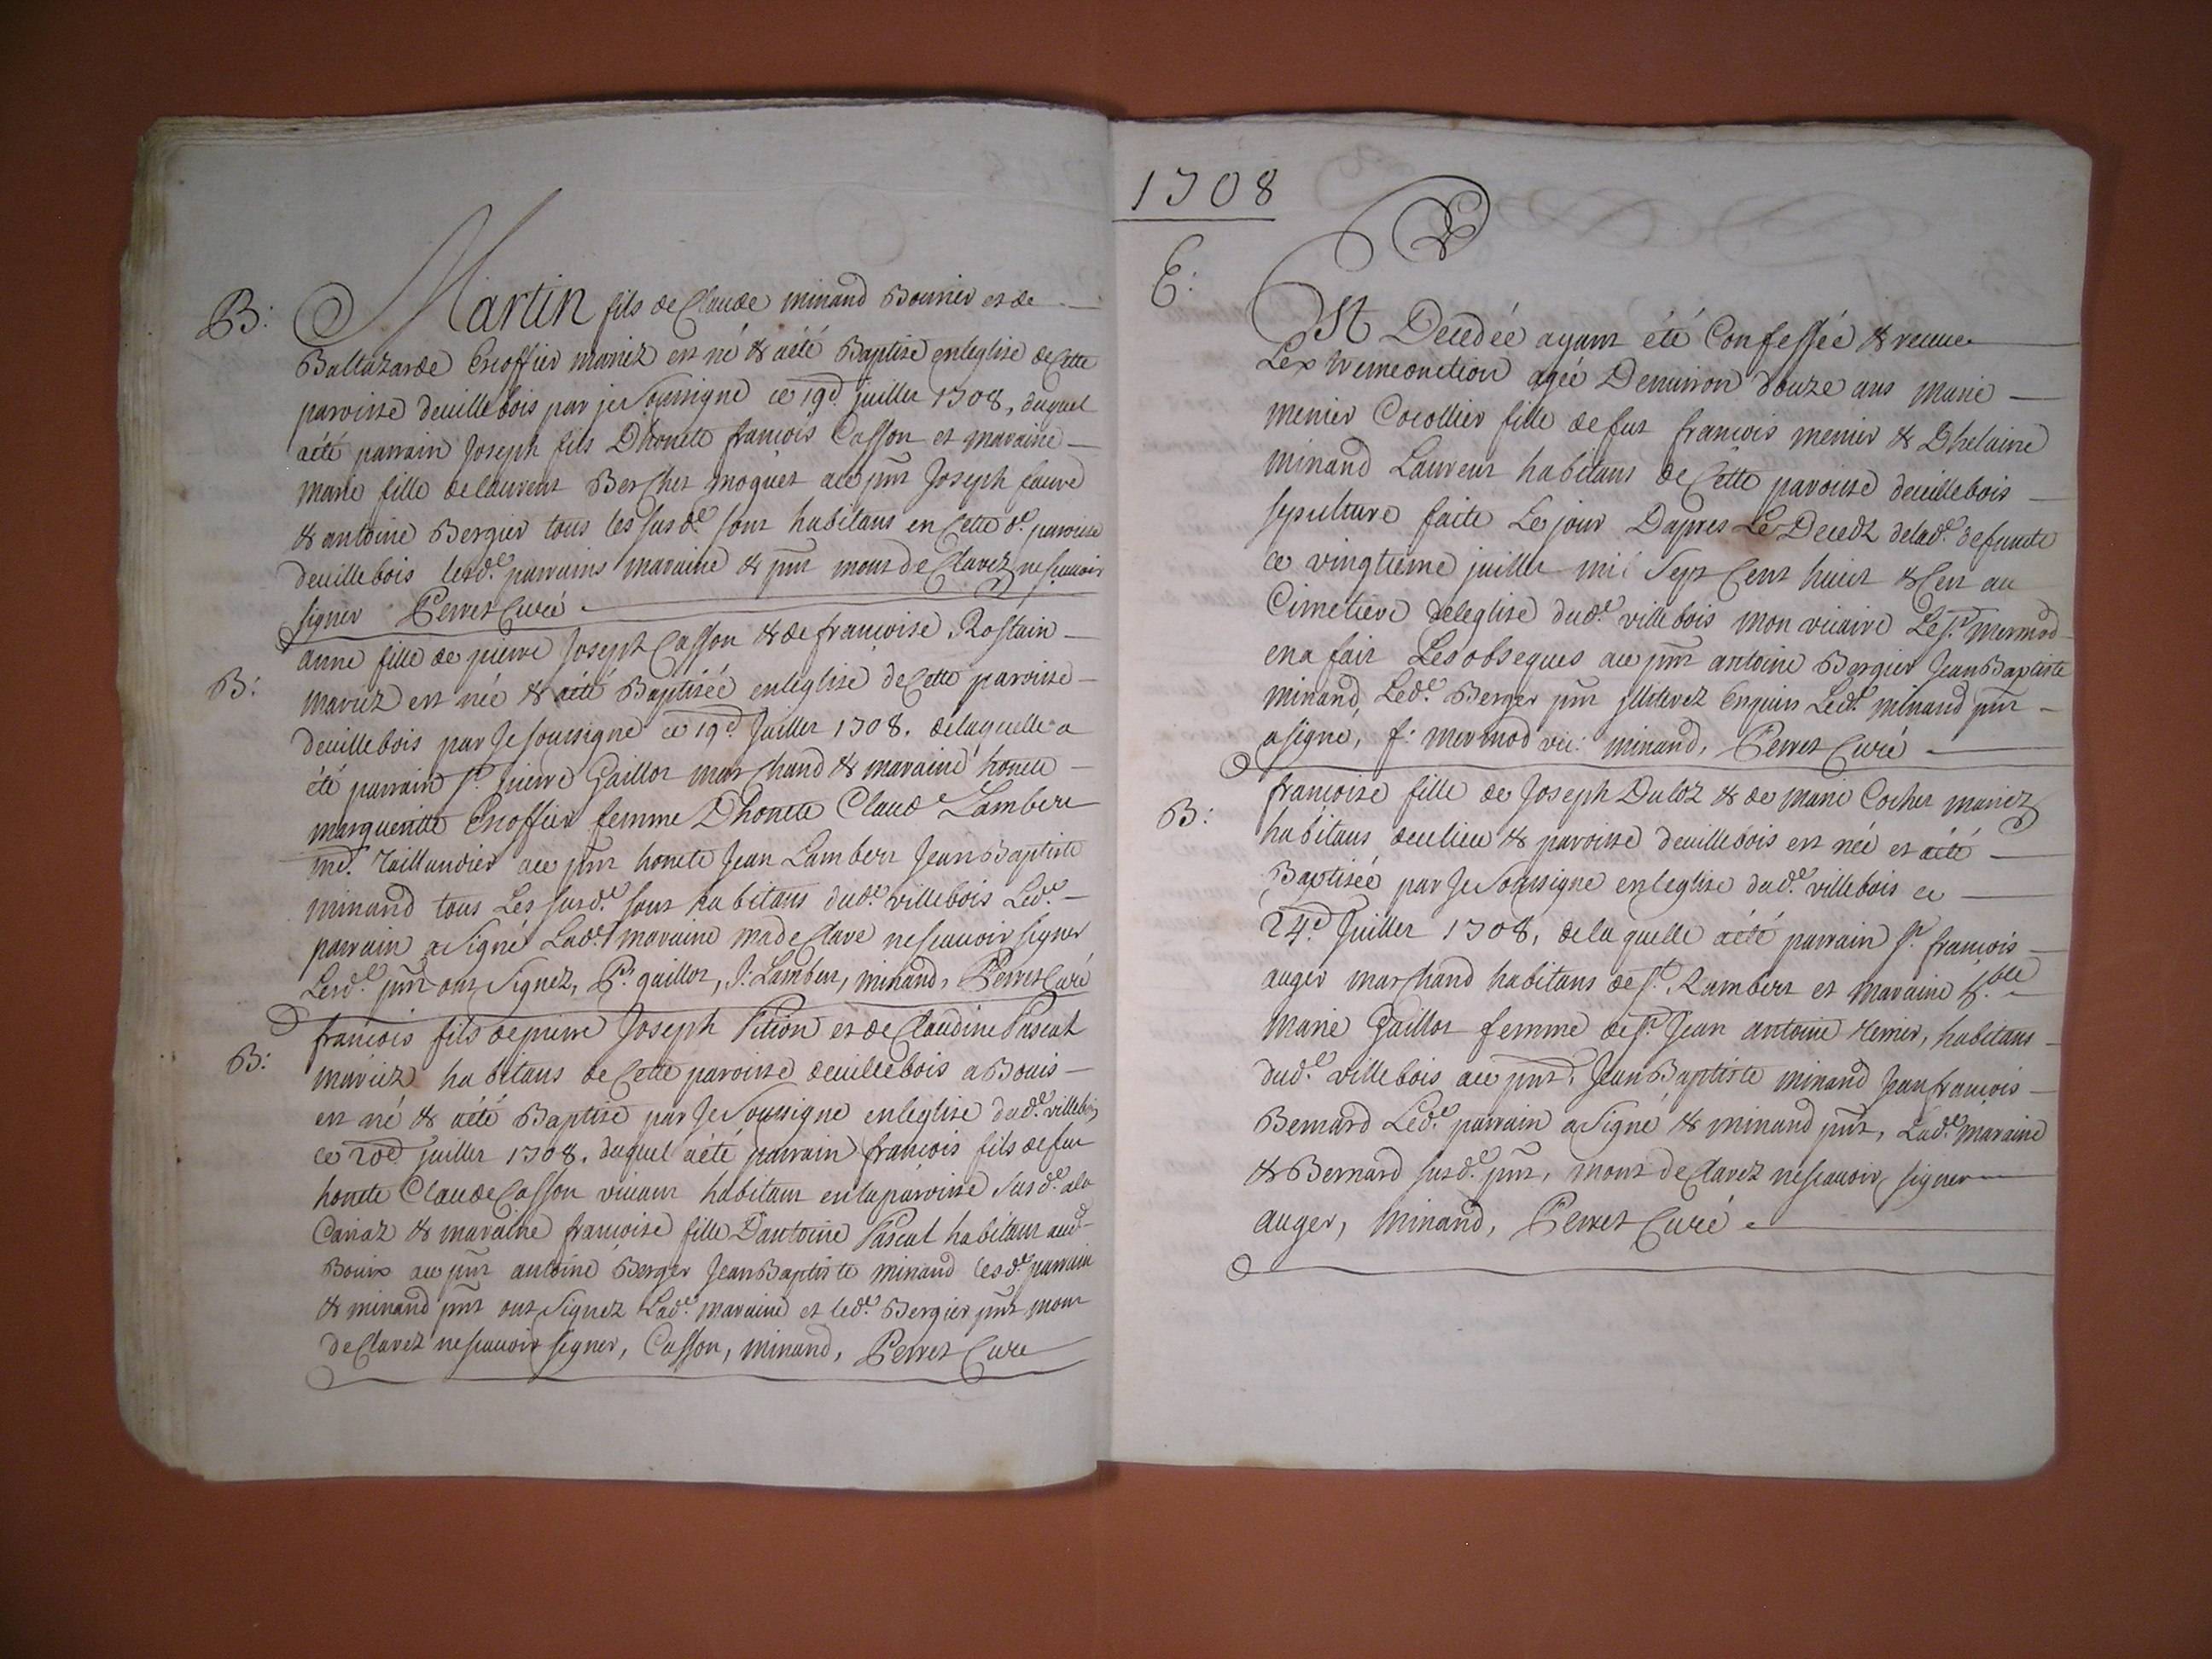 B: Martin fils de Claude minand Bourrier et de
Baltazarde Escoffier mariez est né & aété Baptisé enleglise de Cette
paroisse deuillebois par je Soussigne ce 19e. juillet 1708, duquel
aété parrain Joseph fils Dhonete francois Casson et maraine
marie fille de laurent Berchet moguet ace pnt Joseph faure
& antoine Bergier tous les susde. sont habitans en Cette de. paroisse
deuillebois lesde. parrains maraine & pnt mont de Clarez nescauoir
signer Perret Curé
anne fille de pierre Joseph Casson & de francoise Rostain
B: mariez est née & aété Baptisée enleglise de Cette paroisse
deuillebois par Je soussigne ce 19e. Juillet 1708. delaquelle a
été parrain sr. pierre Gaillot marchand & maraine honete
margueritte Escoffier femme Dhonete Claude Lambert
me. Taillandier ace pnt honete Jean Lambert Jean Baptiste
minand tous Les susde. sont habitans dude. villebois Lede.
parrain a Signé Lade. maraine ma de Claré nescauoir signer
Lesde. pnt ont Signez, Pr. gaillot, J: Lambert, minand, Perret Curé
francois fils de pierre Joseph Pition et de Claudine Pascal
B: mariez habitans de Cette paroisse deuillebois a Bouis
est né & aété Baptisé par Je Soussigne enleglise dude. villebois
ce 20e. juillet 1708. duquel aété parrain francois fils de fut
honete Claude Casson viuant habitant enla paroisse Susde. ala
Carraz & maraine francoise fille Dantoine Pascal habitant aud.
Bouix ace pnt antoine Berger Jean Baptiste minand lesde. parrain
& minand pnt ont Signez Lade. maraine et lede. Bergier pnt mont
de Clarez nescauoir signer, Casson, minand, Perret Cure
1708
E: Est Decedée ayant été Confessée & receue
Lextremeonction agée Denuiron douze ans marie
menier Cocollier fille de fut francois menier & Dhelaine
minand Laurent habitans de Cette paroisse deuillebois
sepulture faite Le jour Dapres Le Decedz delade. defuncte
ce vingtieme juillet mil Sept Cent huict & Cen au
Cimetiere deleglise dude. villebois mon vicaire Le sr. mermod
ena fait Les obseques ace pnt antoine Bergier Jean Baptiste
minand, Lede. Berger pnt jlliterez Enquis Lede. minand pnt
a signé, f: mermod vic: minand, Perret Curé
francoise fille de Joseph Duloz & de marie Cochet mariez
B: habitans deulieu & paroisse deuillebois est née et aété
Baptisée par Je Soussigne enleglise dude. villebois ce
24e. Juillet 1708, delaquelle aété parrain sr. francois
auger marchand habitans de st. Rambert et maraine hble
marie Gaillot femme de sr. Jean antoine Menier, habitans
dude. villebois ace pnt. Jean Baptiste minand Jean francois
Bernard Lede. parrain a Signé & minand pnt, Lade. maraine
& Bernard susde. pnt, mont de Clarez nescauoir signer
auger, minand, Perret Curé